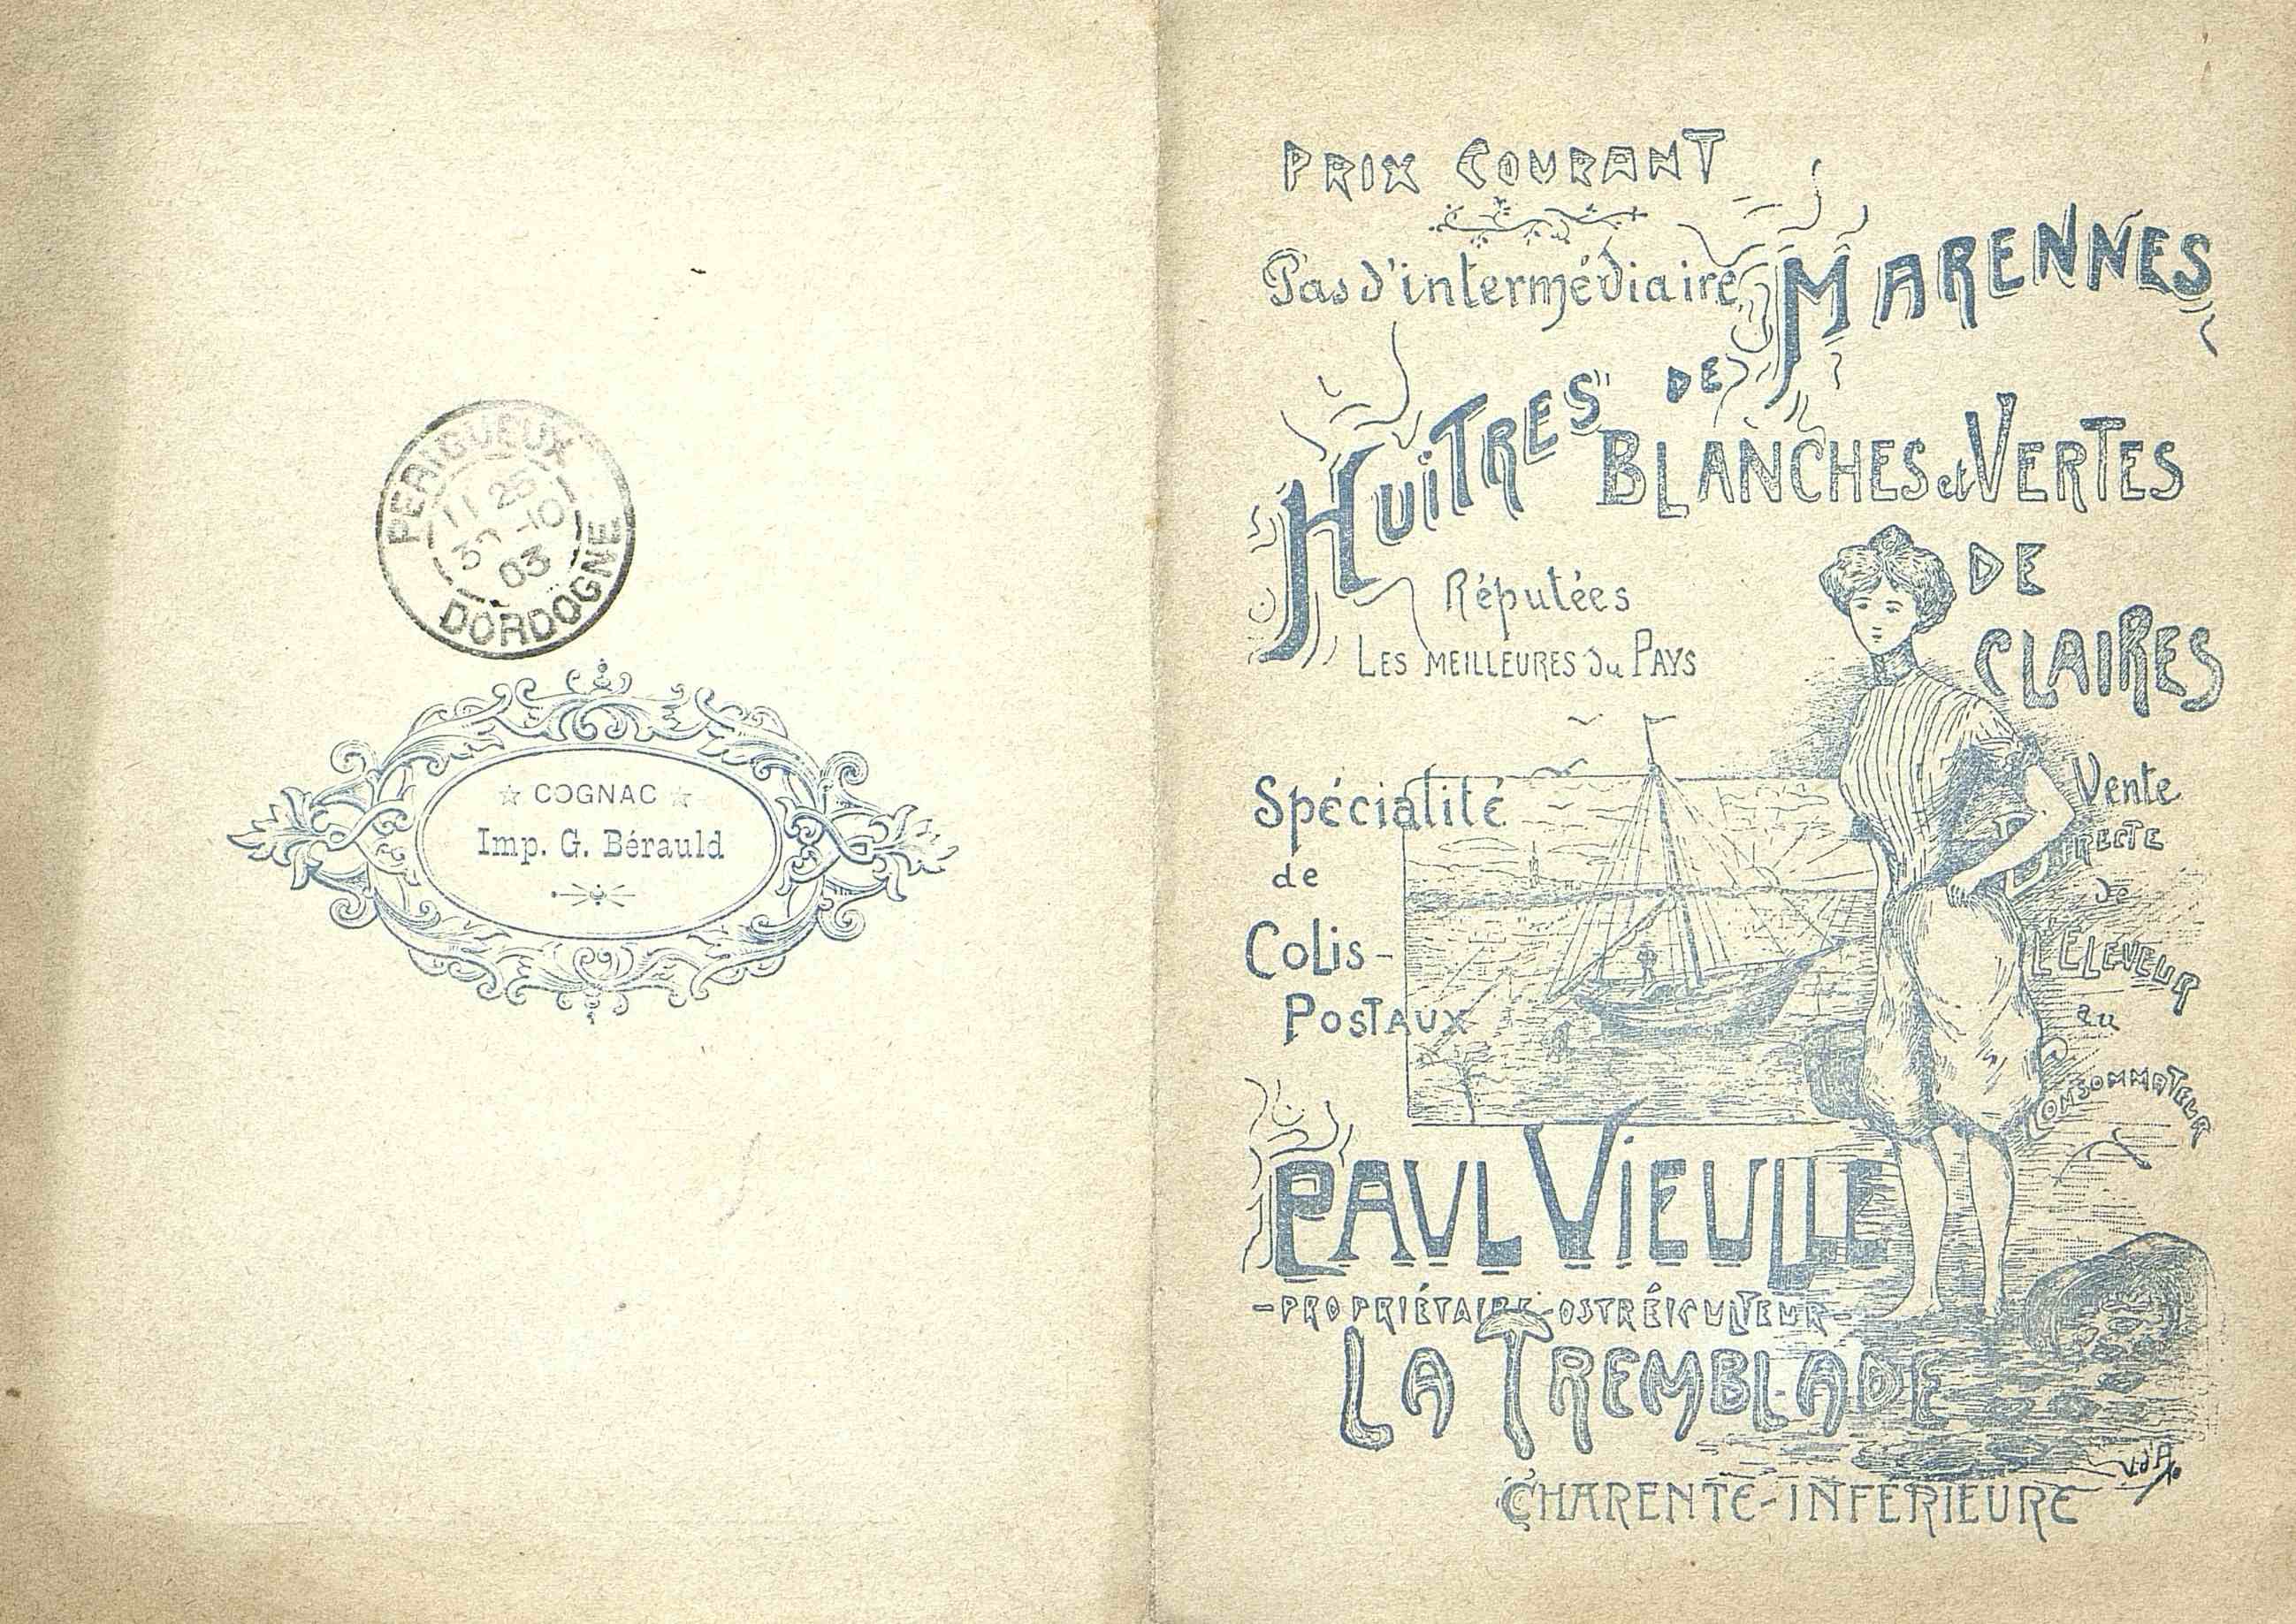 PERIGUEUX
11 25
30 -10
03
DORDOGNE
COGNAC
Imp. G. Bérauld
PRIX COURANT
Pas d'intermédiaire
HUITRES DE MARENNES
BLANCHES et VERTES
DE
CLAIRES
Réputées
LES MEILLEURES du PAYS
Spécialité
de
Colis-
POSTAUX
Vente
DIRECTE
de
L'ELEVEUR
au
CONSOMMATEUR
PAUL VIEULLE
-PROPRIÉTAIRE-OSTRÉICULTEUR-
LA TREMBLADE
CHARENTE-INFERIEURE